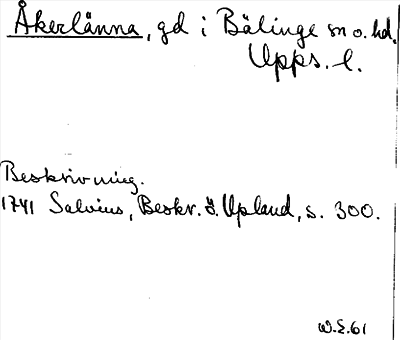 Åkerlänna, gd i Bälinge sn o. hd.
Upps. l.
Beskrivning.
1741 Salvius, Beskr. ö. Upland, s. 300.
W.E.61